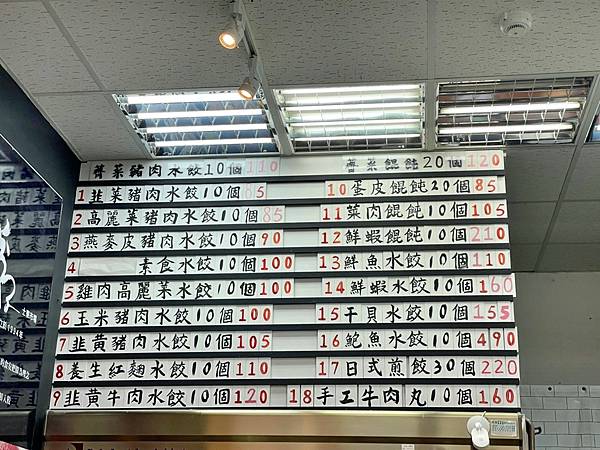 薺菜豬肉水餃10個110
1韭菜豬肉水餃10個85
2高麗菜豬肉水餃10個85
3燕麥皮豬肉水餃10個90
4 素食水餃10個100
5雞肉高麗菜水餃10個100
6玉米豬肉水餃10個100
7韭黃豬肉水餃10個105
8養生紅麴水餃10個110
9韭黃牛肉水餃10個120
薺菜餛飩20個120
10蛋皮餛飩20個85
11菜肉餛飩10個105
12鮮蝦餛飩10個210
13鮮魚水餃10個110
14鮮蝦水餃10個160
15干貝水餃10個155
16鮑魚水餃10個490
17日式煎餃30個220
18手工牛肉丸10個160